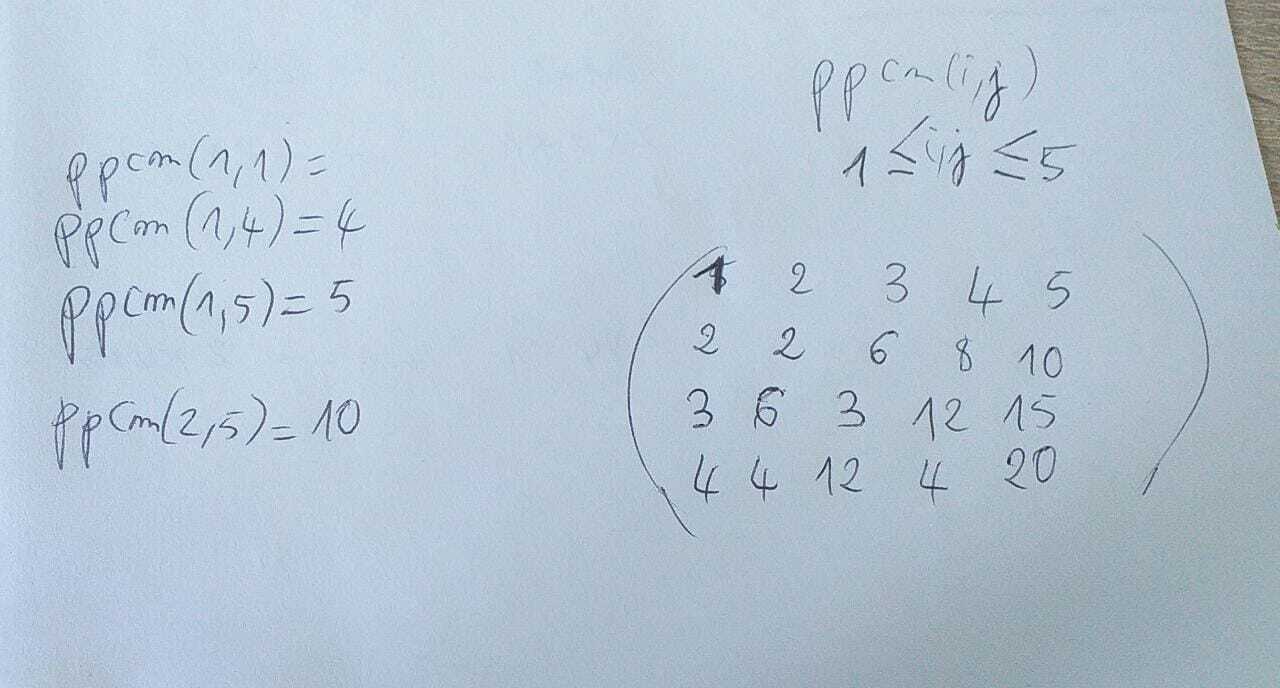 ppcm(1,1)=
ppcm(1,4)=4
ppcm(1,5)=5
ppcm(2,5)=10
ppcm(i,j)
1≤i,j≤5
1 2 3 4 5
2 2 6 8 10
3 6 3 12 15
4 4 12 4 20